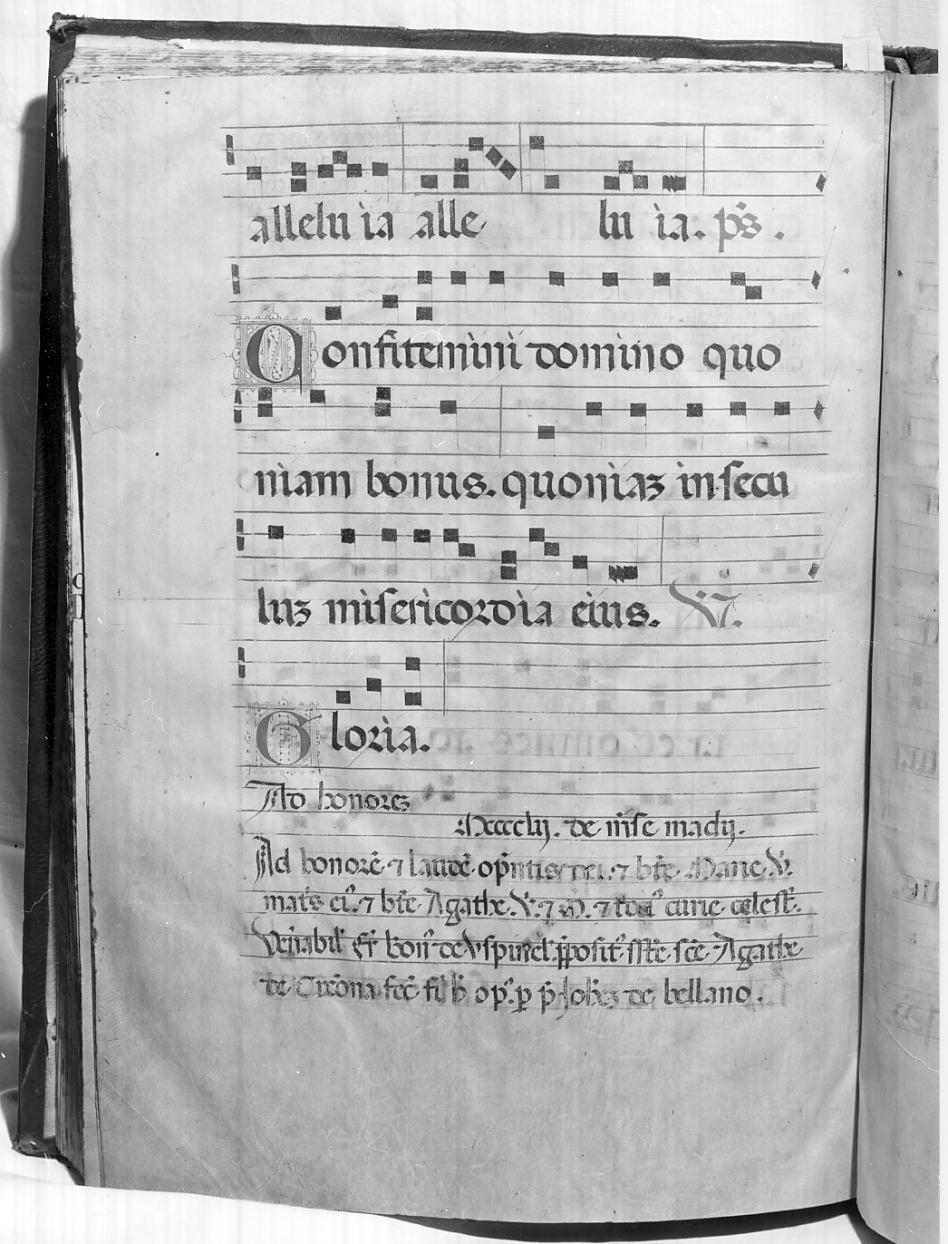 allelu ia alle lu ia: ps̄ .
Confitemini domino quo
niam bonus. quoniaʒ in secu
luʒ misericordia eius. V̄.
Gloria.
Ad honoreʒ
Mccccluj. de m̄se madij.
Ad honorē ⁊ laudē op̄ntis dei. ⁊ bt̄e Marie V̄.
mat͛s ei᾽. ⁊ bt̄e Agathe V̄. ⁊ M̄. ⁊ toci᾽ curie celest̄.
Ven̄abil᾽ fr̄ bon᾽ de p̄posit᾽ Agathe
de Cremona fec̄ fi᾽ h᾽ op᾽. p̱ p̄. Joh̄eʒ de bellano.